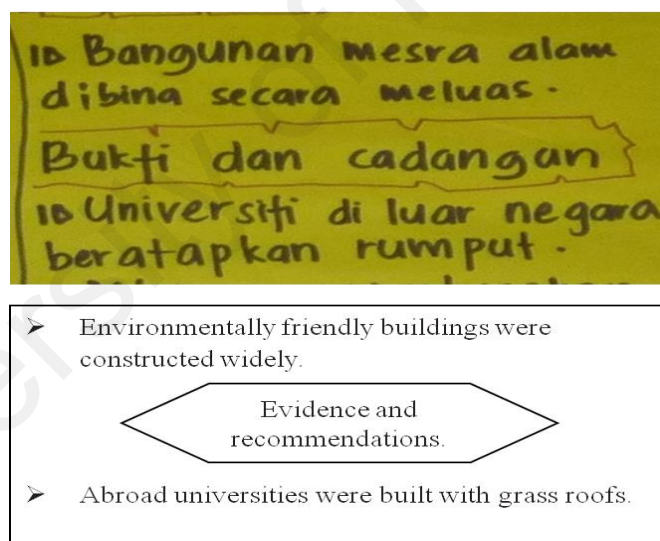 Bangunan mesra alam
dibina secara meluas.
Bukti dan cadangan
Universiti di luar negara
beratapkan rumput.
Environmentally friendly buildings were
constructed widely.
Evidence and
recommendations.
Abroad universities were built with grass roofs.